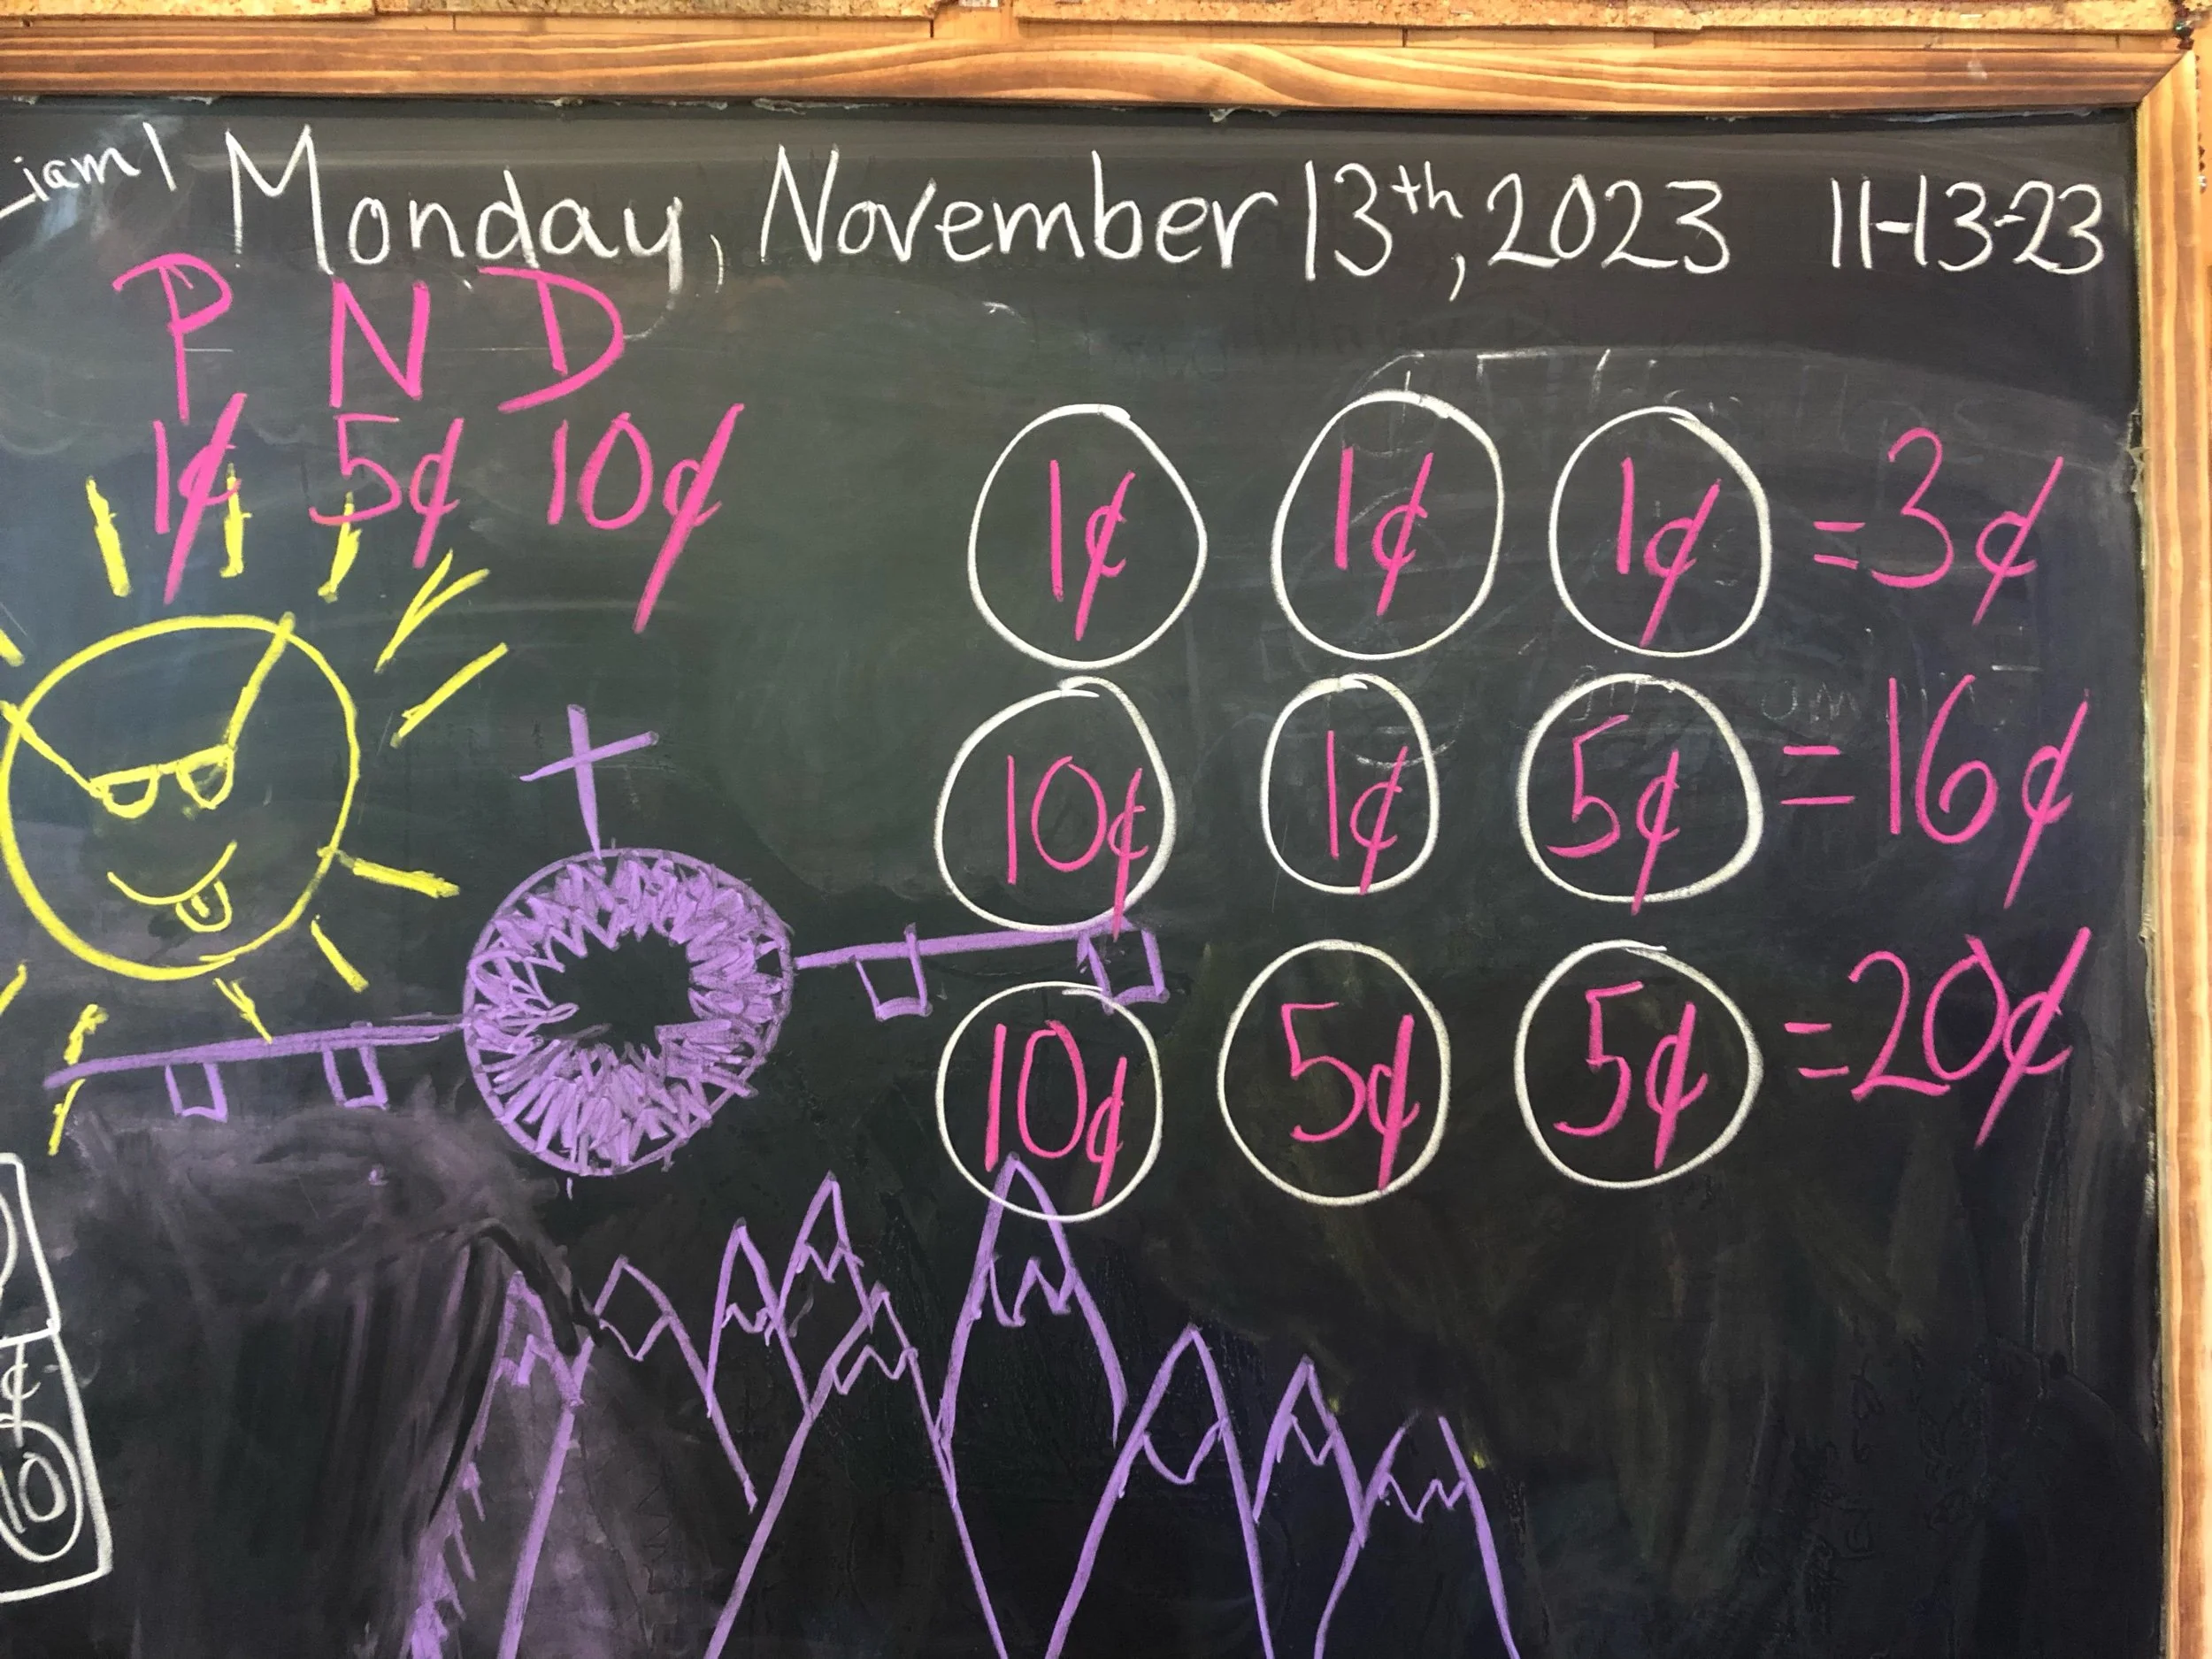 Monday, November 13th, 2023 11-13-23
P N D
1¢ 5¢ 10¢
1¢ 1¢ 1¢ = 3¢
10¢ 1¢ 5¢ = 16¢
10¢ 5¢ 5¢ = 20¢
¢
10